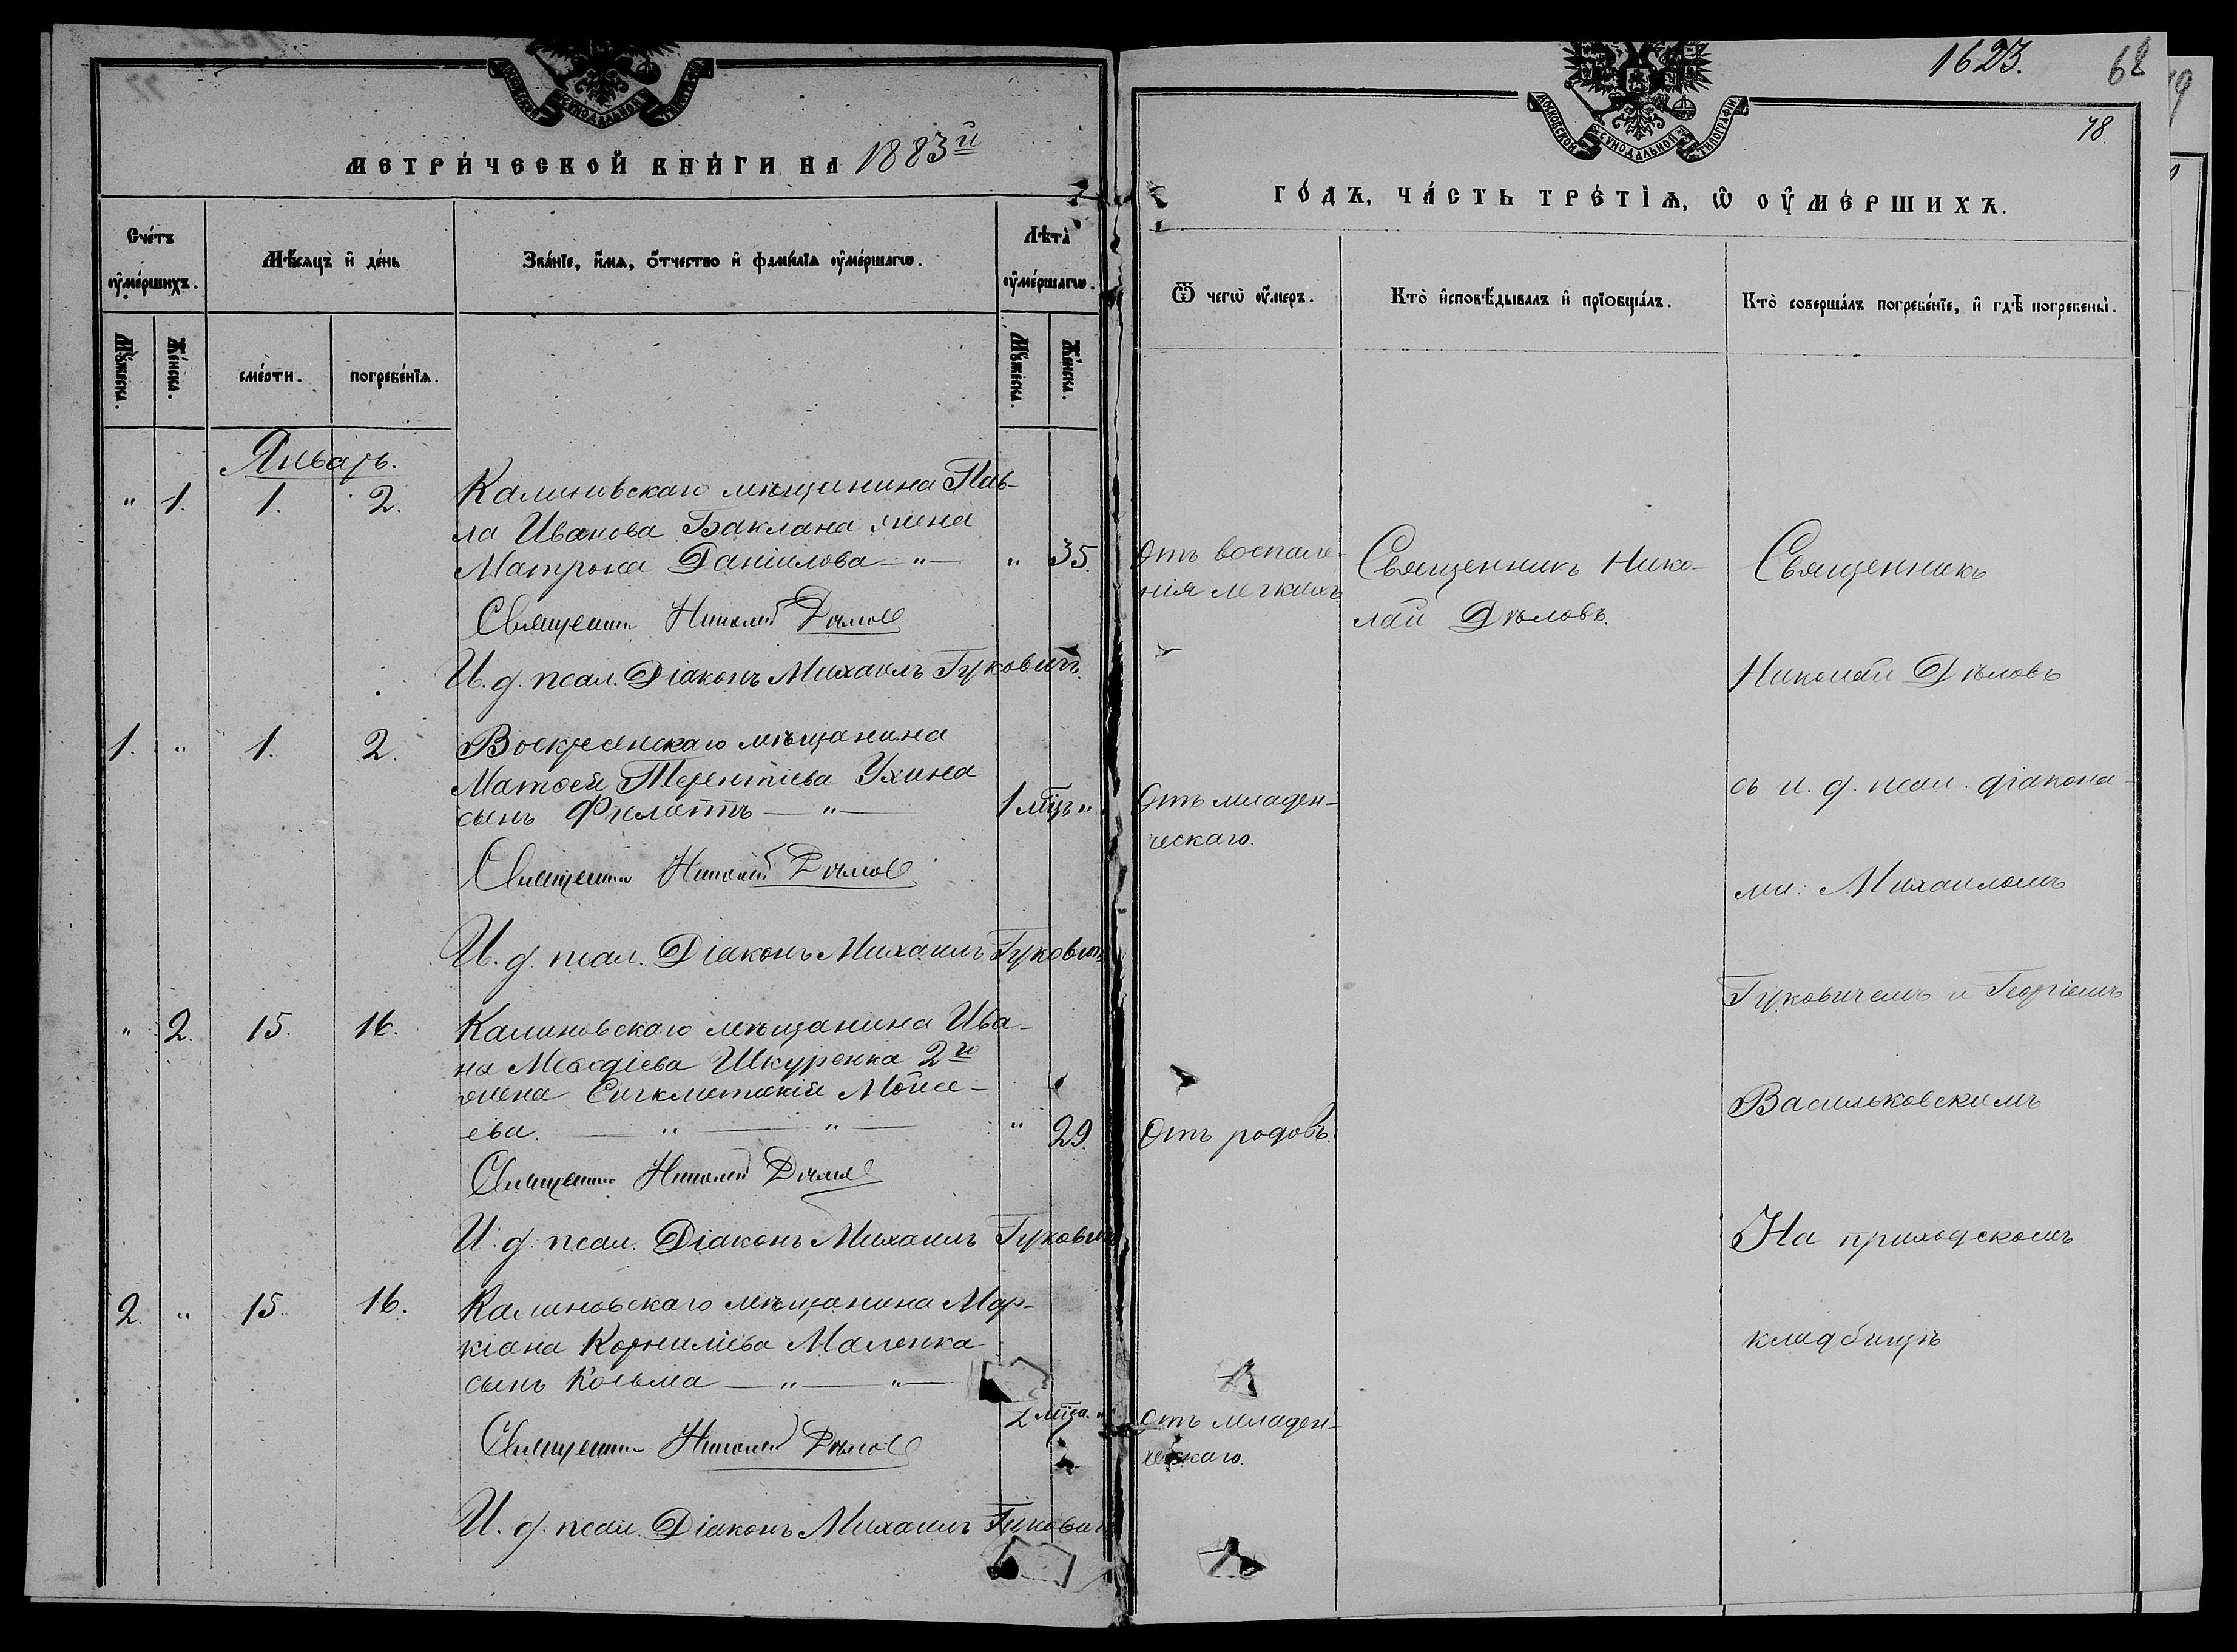 МОСКОВСКОЙ СУНОДАЛЬНОЙ ТИПОГРАФІИ
МЕТРИ́ЧЕСКОЙ КНИ́ГИ НА 1883й
Сче́тъ ᲂу҆ме́ршихъ.
Мѣ́сяцъ и҆ де́нь
Зва́нїе, и҆́мѧ, ѻ҆́тчество и҆ фами́лїѧ ᲂу҆ме́ршагѡ.
Лѣта̀ ᲂу҆ме́ршагѡ.
Мꙋ́жеска.
Же́нска.
сме́рти.
погребе́нїѧ.
Мꙋ́жеска.
Же́нска.
Январь.
" 1. 1. 2. Калиновскаго мѣщанина Пав-
ла Иванова Баклана жена
Матрона Даніилова — " — " 35.
Священникъ Николай Дѣловъ
И. д. псал. Діаконъ Михаилъ Гуковичъ.
1. " 1. 2. Воскресенскаго мѣщанина
Матѳея Терентіева Ухина
сынъ Филаттъ — " — 1 мцъ "
Священникъ Николай Дѣловъ
И. д. псал. Діаконъ Михаилъ Гуковичъ
" 2. 15. 16. Калиновскаго мѣщанина Ива-
на Меѳодіева Шкуренка 2го
жена Сигклитикія Мойсе-
ева. — " — " — " 29.
Священникъ Николай Дѣловъ
И. д. псал. Діаконъ Михаилъ Гуковичъ
2. " 15. 16. Калиновскаго мѣщанина Мар-
кіана Корниліева Маленка
сынъ Косьма — " — " —
2 мца. "
Священникъ Николай Дѣловъ
И. д. псал. Діаконъ Михаилъ Гуковичъ
1623.
68
78.
МОСКОВСКОЙ СУНОДАЛЬНОЙ ТИПОГРАФІИ
ГО́ДЪ, ЧА́СТЬ ТРЕ́ТЇѦ, Ѡ҆ ОУ҆МЕ́РШИХЪ.
Ѿ чегѡ̀ ᲂу҆́меръ.
Кто̀ и҆сповѣ́дывалъ и҆ прїѻбща́лъ.
Кто̀ соверша́лъ погребе́нїе, и҆ гдѣ̀ погребены̀.
Отъ воспале-
нія легкихъ
Священникъ Нико-
лай Дѣловъ.
Священникъ
Николай Дѣловъ
съ и. д. псал. діакона-
ми: Михаиломъ
Гуковичемъ и Георгіемъ
Васильковскимъ
На приходскомъ
кладбищѣ
Отъ младен-
ческаго.
Отъ родовъ.
Отъ младен-
ческаго.